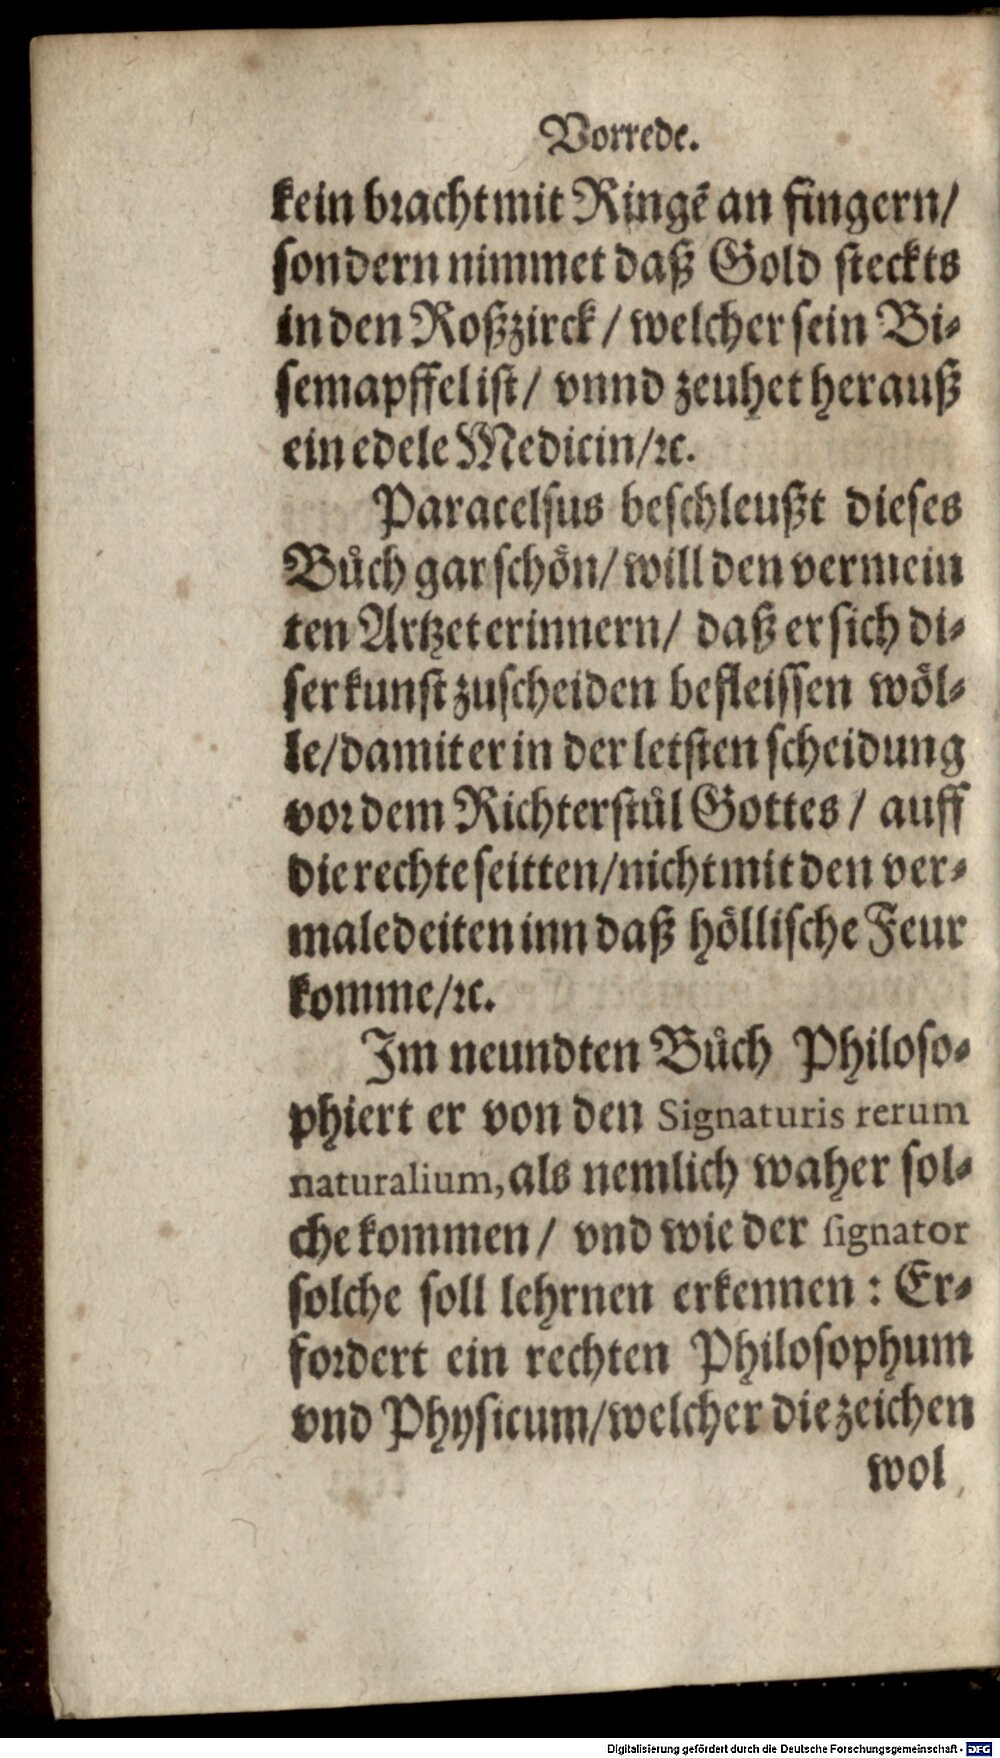 Vorrede.
kein bracht mit Ringē an fingern/
sondern nimmet daß Gold steckts
in den Roßzirck / welcher sein Bi-
semapffel ist / vnnd zeuhet herauß
ein edele Medicin/ꝛc.
Paracelsus beschleußt dieses
Bůch gar schön/ will den vermein
ten Artzet erinnern/ daß er sich di-
ser kunst zuscheiden befleissen wöl-
le/damit er in der letsten scheidung
vor dem Richterstůl Gottes / auff
die rechte seitten/nicht mit den ver-
maledeiten inn daß höllische Feur
komme/ꝛc.
Im neundten Bůch Philoso-
phiert er von den Signaturis rerum
naturalium, als nemlich waher sol-
che kommen / vnd wie der signator
solche soll lehrnen erkennen : Er-
fordert ein rechten Philosophum
vnd Physicum/welcher die zeichen
wol
Digitalisierung gefördert durch die Deutsche Forschungsgemeinschaft - DFG